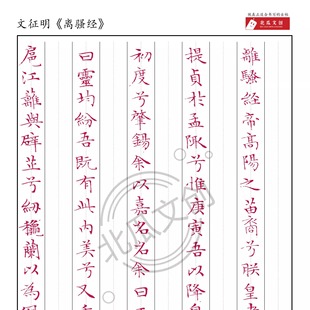 文征明《离骚经》
北瓜文创
離騷経帝高陽之苗裔兮朕皇
提貞於孟陬兮惟庚寅吾以降皇
初度兮肇錫余以嘉名名余曰
曰靈均紛吾既有此内美兮又
扈江蘺與辟芷兮紉秋蘭以為
北瓜文创